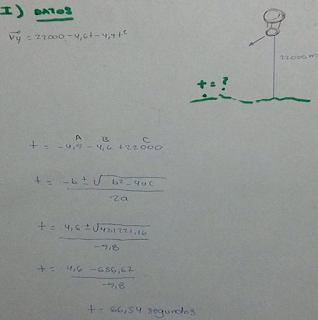 I) DATOS
Vy = 22000 - 4,6t - 4,9t²
22000m
t = ?
A B C
t = -4,9 - 4,6 + 22000
t = -b ± √b² - 4ac
2a
t = 4,6 ± √431221,16
-9,8
t = 4,6 - 656,67
-9,8
t = 66,54 segundos